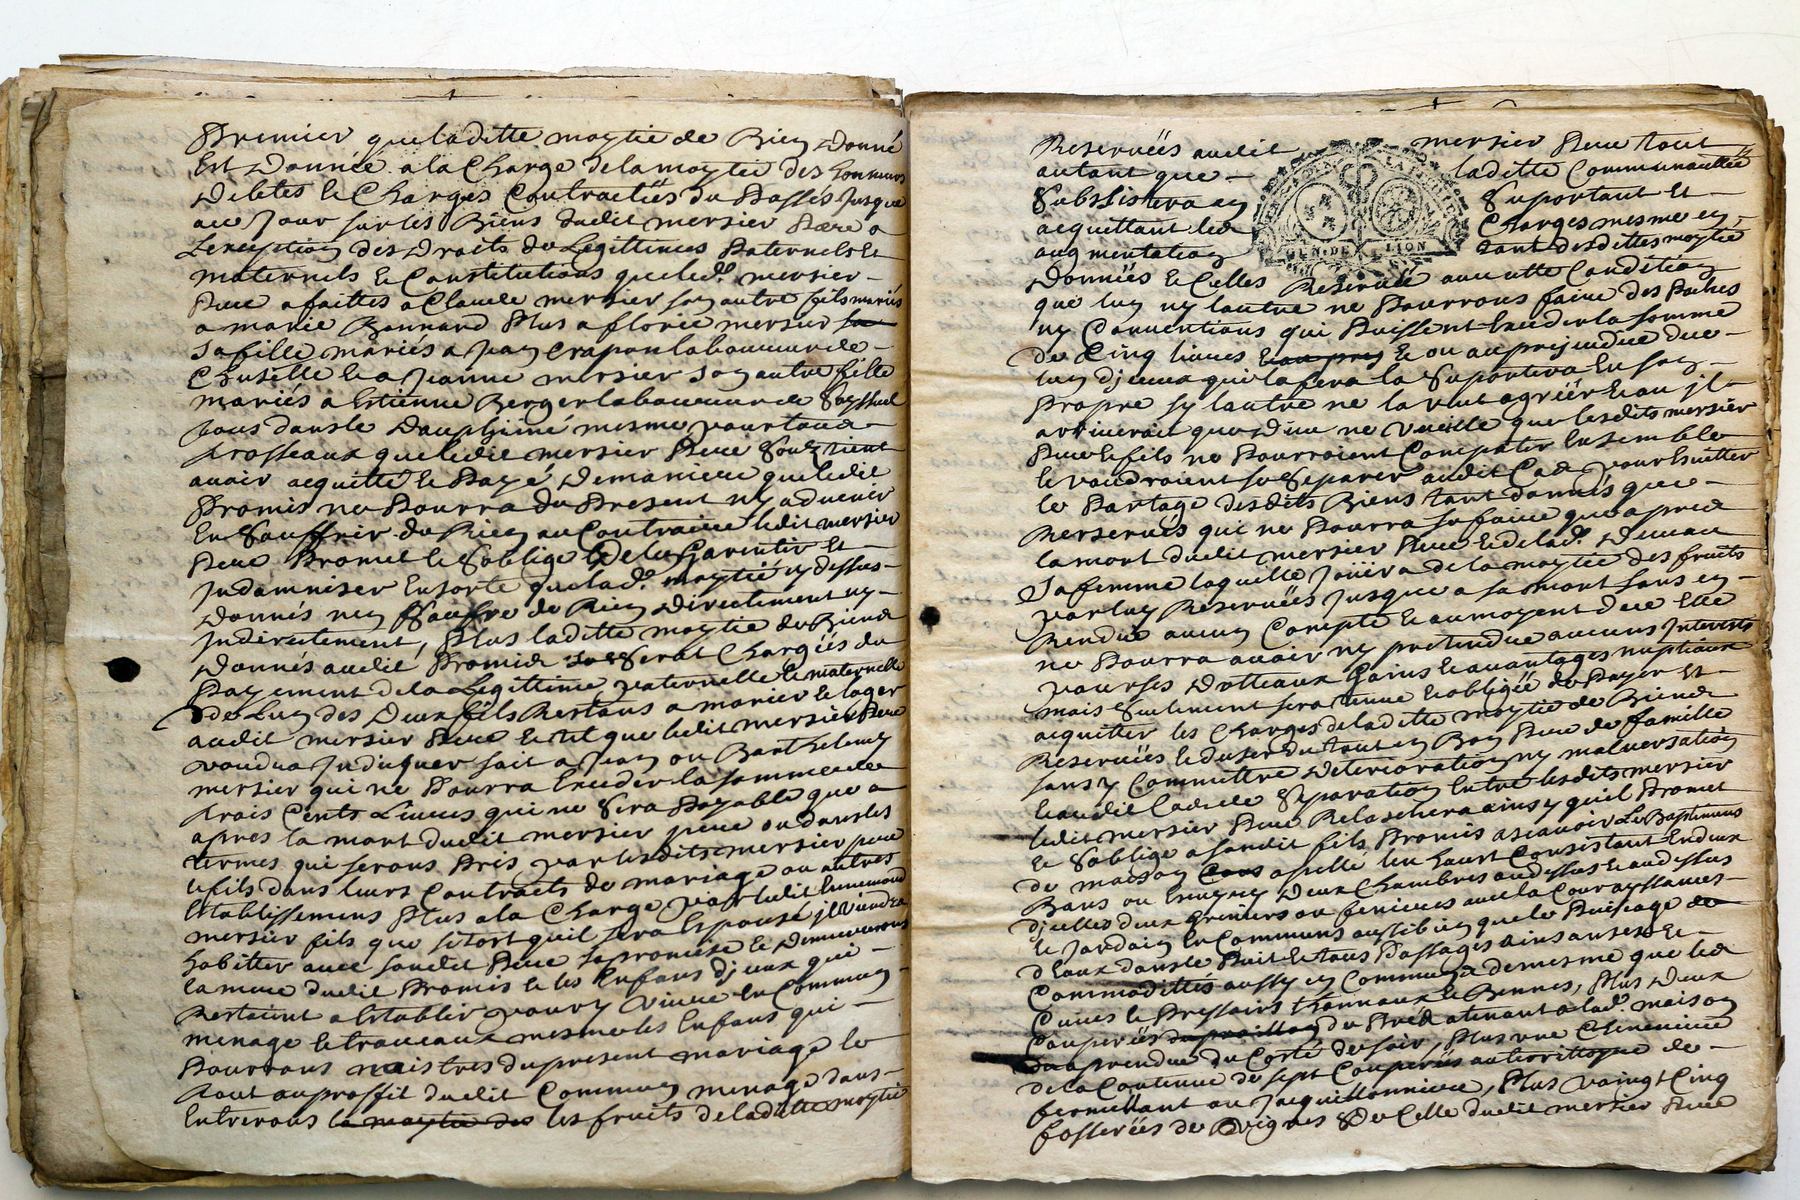 Premier que laditte moytie de Bien donné
Est Donnée a la Charge de la moytie des honneurs
Debtes & Charges Contractées du Passés Jusque
au Jour sur les Biens dudit mersier Pere a
Lexception des Droits de Legittimes Paternels Et
maternels & Constitutions que led. mersier
Pere a faittes a Claude mersier son autre fils mariés
a marie Bonnard Plus a florie mersier
sa fille mariés a Jean Crapon laboureur de
Chuselle & a Jeanne mersier son autre fille
mariés a Estienne Berger laboureur de Seyssuel
tous dans le Dauphiné mesme pour tous
trosseaux que ledit mersier Pere
avoir acquitté & Payé De maniere que ledit
Promis ne Pourra du Present ny advenir
En Souffrir de Rien au Contraire ledit mersier
Pere Promet & Soblige De le Garentir Et
Indamniser En sorte que lad. moytié cy dessus
Donnés nen Soufre de Rien Directement ny
Indirectement, Plus laditte moytie de Biens
Donnés audit Promis Serat Chargées du
Payement de la Legittime paternelle & maternelle
de Lun des Deux fils Restans a marier & loger
audit mersier Pere & tel que ledit mersier Pere
voudra Induquer soit a Jean ou Barthelemy
mersier qui ne Pourra Exceder la somme de
trois Cents Livres qui ne Sera Payable que
apres la mort dudit mersier pere ou dans les
termes qui seront Pris par lesdits mersier pere
& fils dans leurs Contracts de mariage ou autres
Establissemens Plus a la Charge par ledit Ennemond
mersier fils que sitost quil sera Espousé jl Viendra
habitter avec sondit Pere sa promise & Demeureront
la mere dudit Promis & les Enfans djeux qui
Restaint a Establir pour y Vivre En Commun
menage & travaux mesme les Enfans qui
Pourrons naistres du present mariage le
tout au proffit dudit Commun menage dans
Entrerons la moytie des les fruits de laditte moytie
Reservées audit mersier Pere tout
autant que laditte Communauttée
Subsistera en Suportant Et
acquittant les Charges mesme en
augmentation tant desdittes moytie
GEN. DE LION
Donnés & Celles Reservée avec cette Condition
que lun ny lautre ne Pourrons faire des Paches
ny Conventions qui Puissent Exceder la somme
de Cinq livres & ou au prejudice de
lun djceux qui la fera la Suportera En son
Propre sy lautre ne la veut agriër & ou jl
arriverait que Dieu ne veuille que lesdits mersier
Pere & fils ne Pourroient Compatir Ensemble
& voudroient se Separer audit Cas
le Partage desdits Biens tant donnés que
Reservés qui ne Pourra se faire que apres
la mort dudit mersier Pere & de lad. Deveau
Sa femme laquelle Joüira de la moytie des fruits
par luy Reservées Jusque a sa mort sans en
Rendre aucun Compte & au moyent de ce Elle
ne Pourra avoir ny pretendre aucuns Interests
pour ses Dotteaux Gains & avantages nuptiaux
mais Seulement sera tenue & obligée de Payer Et
acquitter les Charges de laditte moytie de Biens
Reservées & duser du tout en Bon Pere de famille
sans y Commettre Deterioration ny malversation
& audit Cas de Separation Entre lesdits mersier
ledit mersier Pere Relaschera ainsy quil Promet
& Soblige a sondit fils Promis ascavoir Le Bastimens
de maison apellé Consistant En deux
Bans ou Deux Chambres au dessus & au dessus
djcelles deux greniers ou fenieres avec la Cour aysances
& Jardin En Communs aussi bien que le Puisage de
deaux dans le Puit & tous Passages ainsances Et
Commodittés aussy en Commun & de mesme que les
Cuves & Pressoirs thonneaux & Bennes, Plus Deux
Couperées de Pred atenant a lad. maison
a prendre du Costé de soir, Plus une Cheneviere
de la Contenue de sept Couperées autorittoyre de
fromentant ou Jacquillonniere, Plus Vaingt Cinq
fosserées de Vignes De Celle dudit mersier Pere